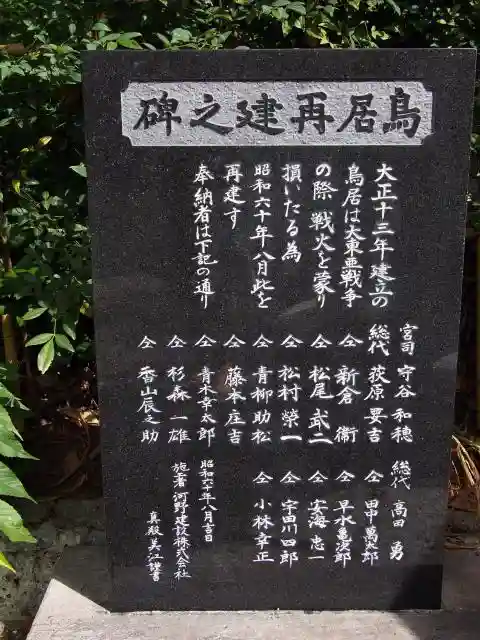 鳥居再建之碑
大正十三年建立の
鳥居は大東亜戦争
の際戦火を蒙り
損いたる為
昭和六十年八月此を
再建す
奉納者は下記の通り
宮司 守谷和穂
総代 荻原要吉
仝 新倉衛
仝 松尾武二
仝 松村榮一
仝 青柳助松
仝 藤本庄吉
仝 青木幸太郎
仝 杉森一雄
仝 香山辰之助
総代 高田勇
仝 田中萬太郎
仝 早水亀次郎
仝 安海忠一
仝 宇田川四郎
仝 小林幸正
昭和六十年八月吉日
施工者 河野建設株式会社
真殿美江謹書